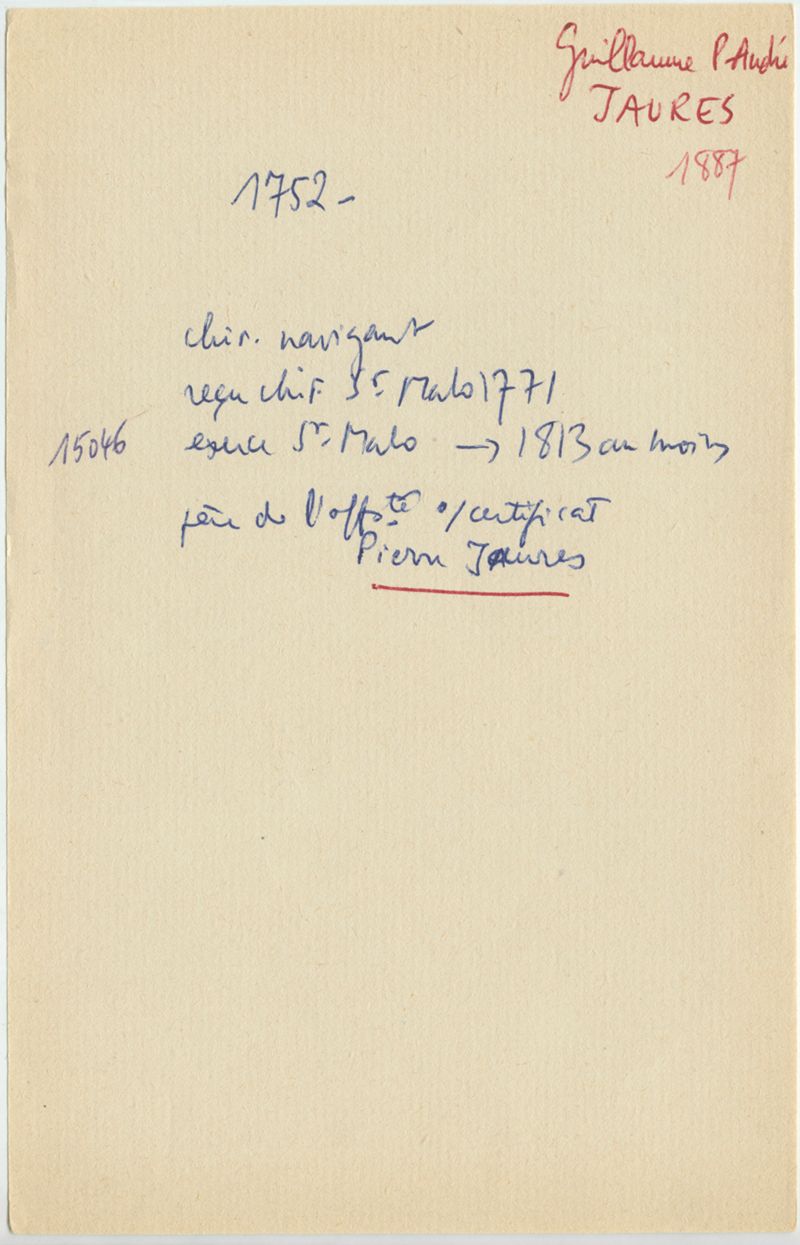 Guillaume P André
JAURES
1887
1752 -
chir. navigant
reçu chir. St. Malo 1771
15046 exerce St. Malo → 1813 au moins
père de l'off. s/certificat
Pierre Jaures